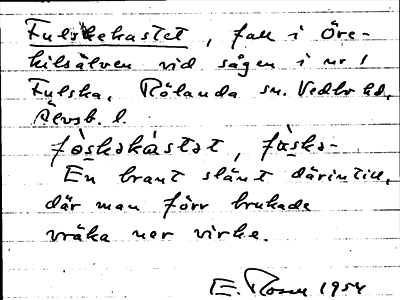 Fulskekastet, fall i Öre-
kilsälven vid sågen i nr 1
Fulska, Rölanda sn. Vedbo hd,
Älvsb. l.
fɵ̀skəkástət, fɵ̀skə-
En brant slänt därintill,
där man förr brukade
vräka ner virke.
E. Rosen 1954